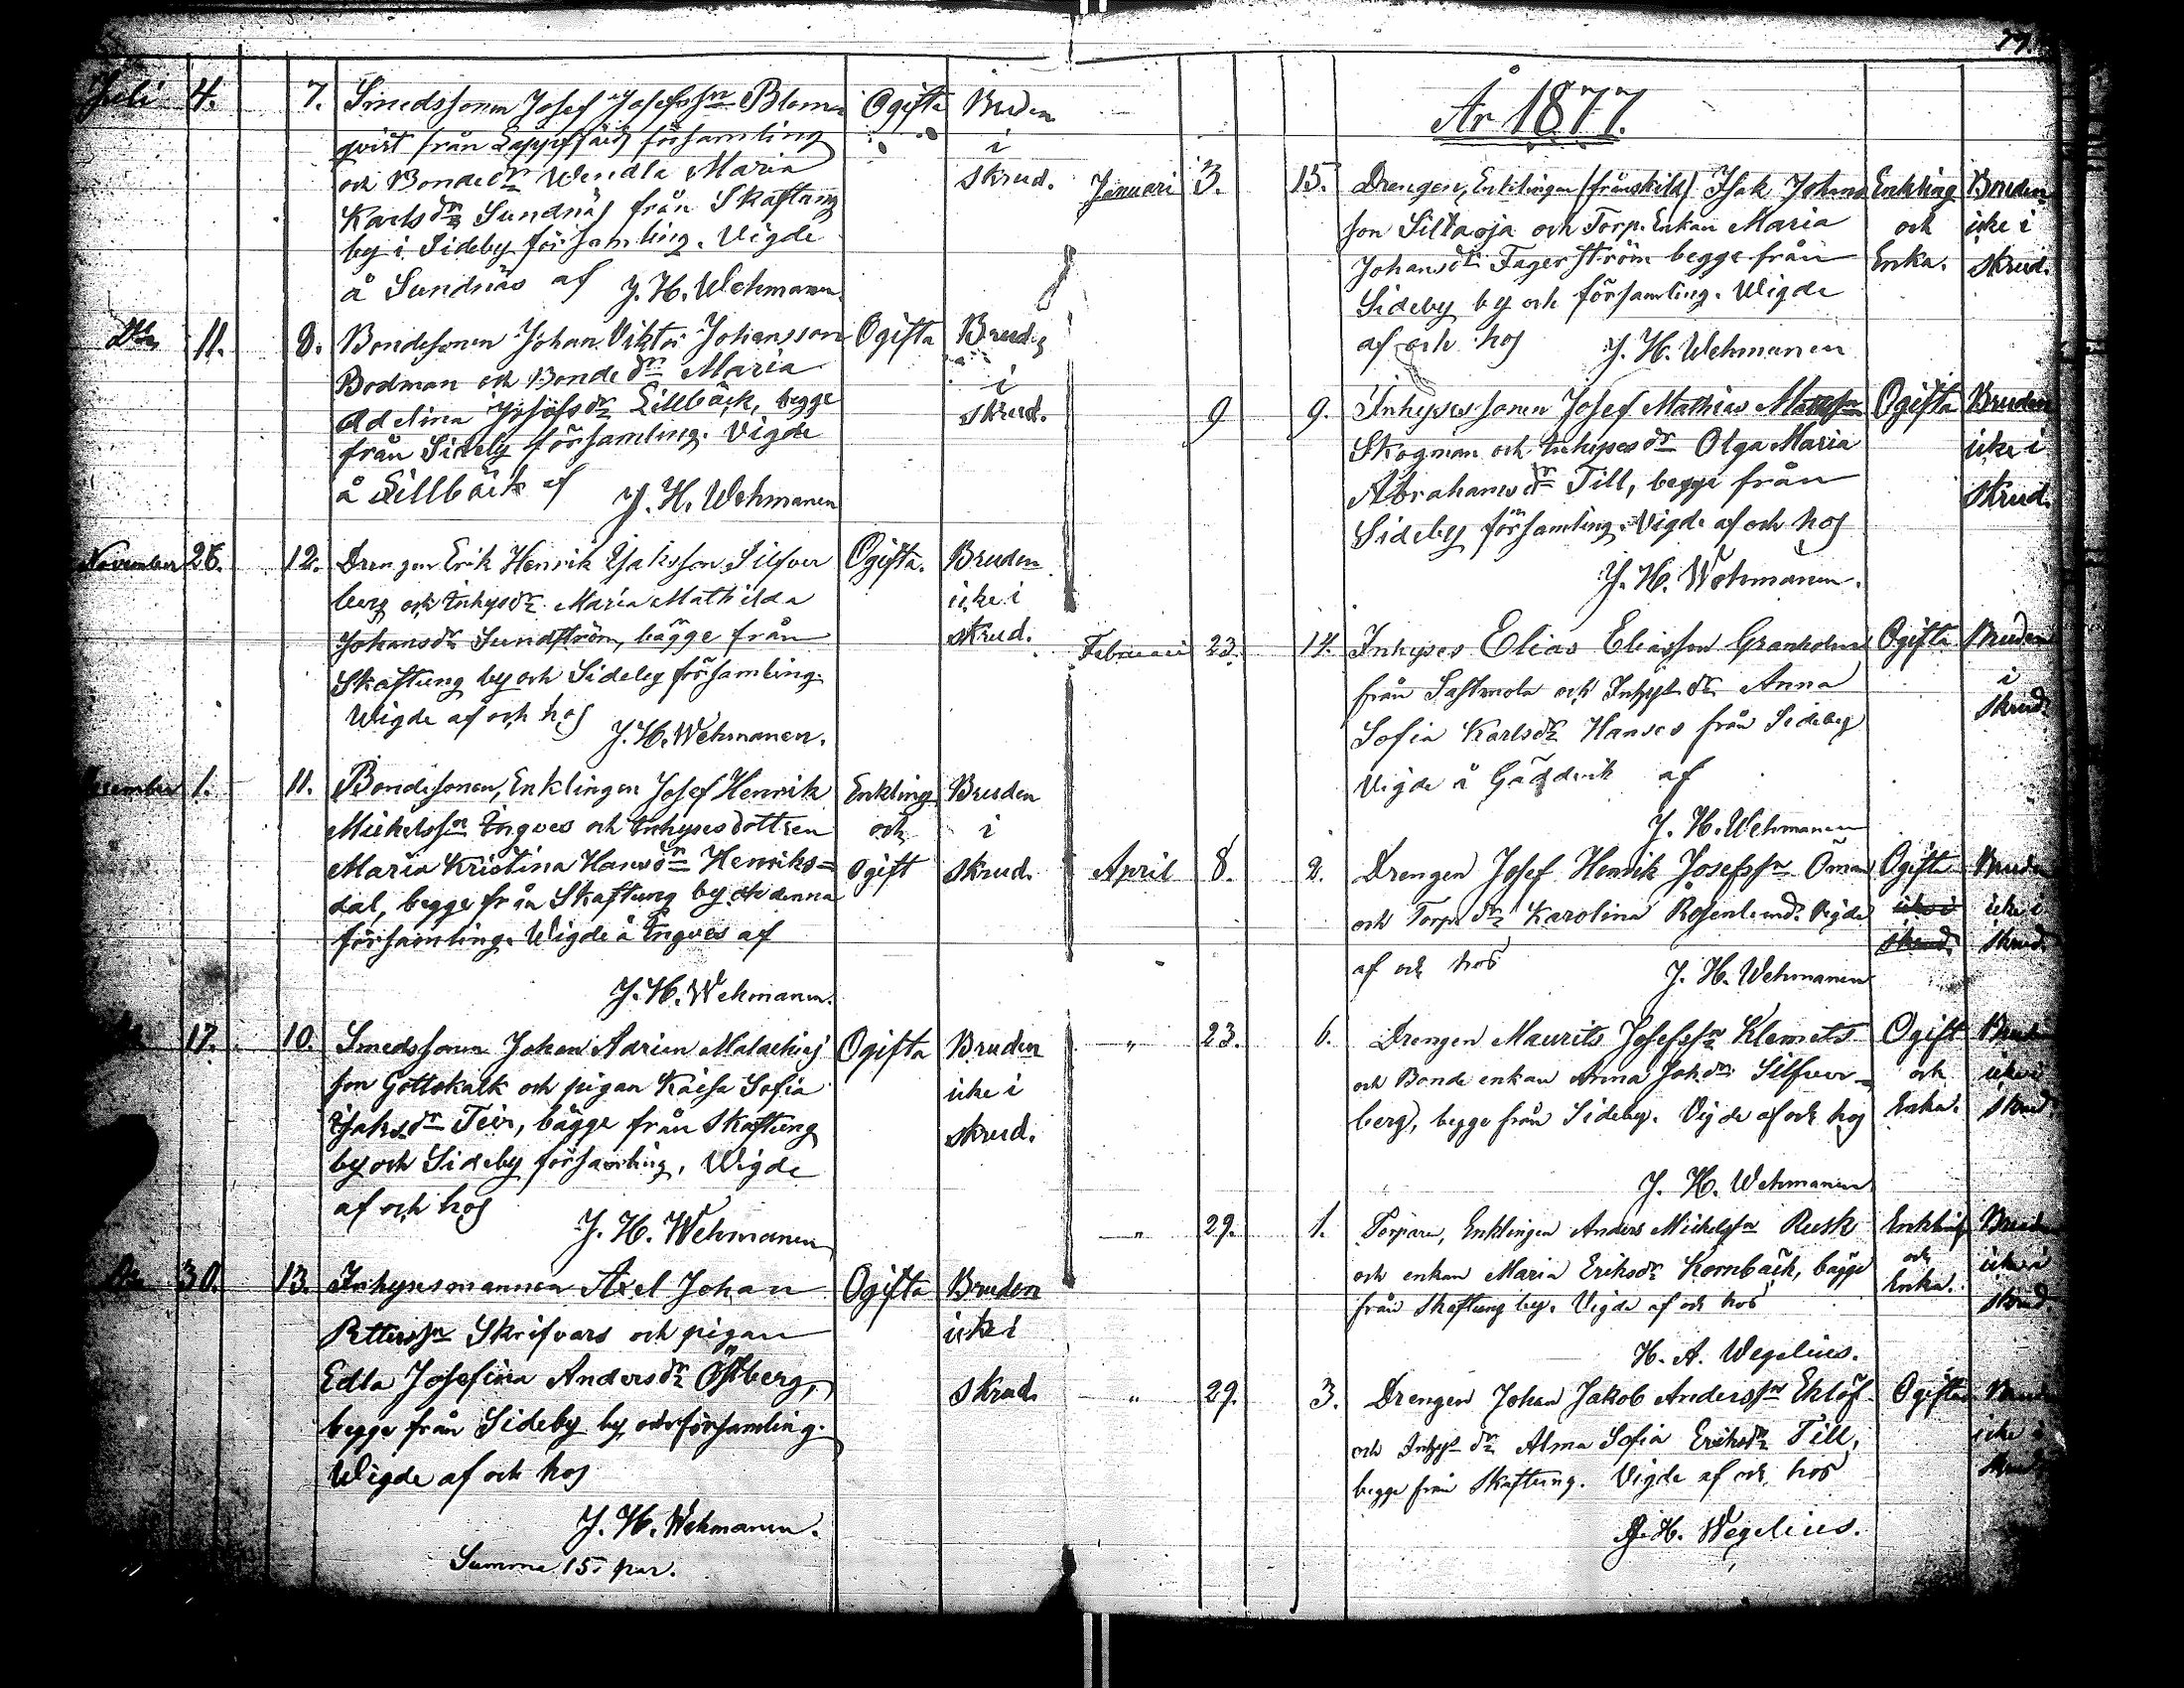 Juli 4. 7. Smedssonen Josef Josefssn Blom- Ogifta Bruden
qvist från Lappfjärd församling i
och Bondedr Wendla Maria skrud.
Karlsdr Sundnäs från Skaftung
by i Sideby församling. Vigde
å Sundnäs af J. H. Wehmanen.
Do 11. 8. Bondesonen Johan Viktor Johansson Ogifta Bruden
Bodman och Bondedr Maria i
Adelina Josefsdr Lillbäck, begge skrud.
från Sideby församling. Vigde
å Lillbäck af J. H. Wehmanen
November 26. 12. Drengen Erik Henrik Isaksson Silfver Ogifta. Bruden
berg och Inhysdr Maria Mathilda icke i
Johansdr Sundström, bägge från skrud.
Skaftung by och Sideby församling.
Wigde af och hos
J. H. Wehmanen.
December 1. 11. Bondesonen, Enklingen Josef Henrik Enkling Bruden
Mickelssn Ingves och Inhysesdottren och i
Maria Kristina Hansdr Henriks= Ogift skrud.
dal, begge från Skaftung by och denna
församling. Wigde å Ingves af
J. H. Wehmanen.
17. 10. Smedssonen Johan Adrian Malachias Ogifta Bruden
son Gottskalk och pigan Kaisa Sofia icke i
Isaksdr Teir, bägge från Skaftung skrud.
by och Sideby församling, Wigde
af och hos
J. H. Wehmanen
Do 30. 13. Inhysesmannen Axel Johan Ogifta Bruden
Petterssn Skrifvars och pigan icke i
Edla Josefina Andersdr Östberg, skrud.
begge från Sideby by och församling.
Wigde af och hos
J. H. Wehmanen.
Summa 15. par.
77.
År 1877.
Januari 3. 15. Drengen, Enklingen (frånskild) Isak Johans Enkling Bruden
son Siltaoja och Torp. Enkan Maria och icke i
Johansdr Fagerström begge från Enka. skrud.
Sideby by och församling. Wigde
af och hos J. H. Wehmanen
9 9. Inhysessonen Josef Mathias Mattssn Ogifta Bruden
Skogman och Inhysesdr Olga Maria icke i
Abrahamsdr Till, begge från skrud.
Sideby församling. Vigde af och hos
J. H. Wehmanen.
Februari 23. 14. Inhyses Elias Eliasson Granholm Ogifta Bruden
från Sastmola och Inhysdr Anna i
Sofia Karlsdr Hanses från Sideby skrud.
Vigde å af
J. H. Wehmanen
April 8. 2. Drengen Josef Henrik Josefssn Öman Ogifta Bruden
och Torp.dr Karolina Rosenlund. Vigde icke i icke i
af och hos skrud. skrud.
J. H. Wehmanen
" 23. 6. Drengen Maurits Josefssn Klemets Ogift Bruden
och Bonde enkan Anna Joh.dr Silfver= och icke i
berg, begge från Sideby. Vigde af och hos Enka. skrud.
J. H. Wehmanen
" 29. 1. Torparen, Enklingen Anders Mickelssn Rusk Enkling Bruden
och enkan Maria Eriksdr Kornbäck, bägge och icke i
från Skaftung by. Vigde af och hos Enka. skrud.
H. A. Wegelius.
" 29. 3. Drengen Johan Jakob Anderssn Eklöf Ogifta Bruden
och Inhysdr Alma Sofia Eriksdr Till, icke i
begge från Skaftung. Vigde af och hos skrud
H. Wegelius.